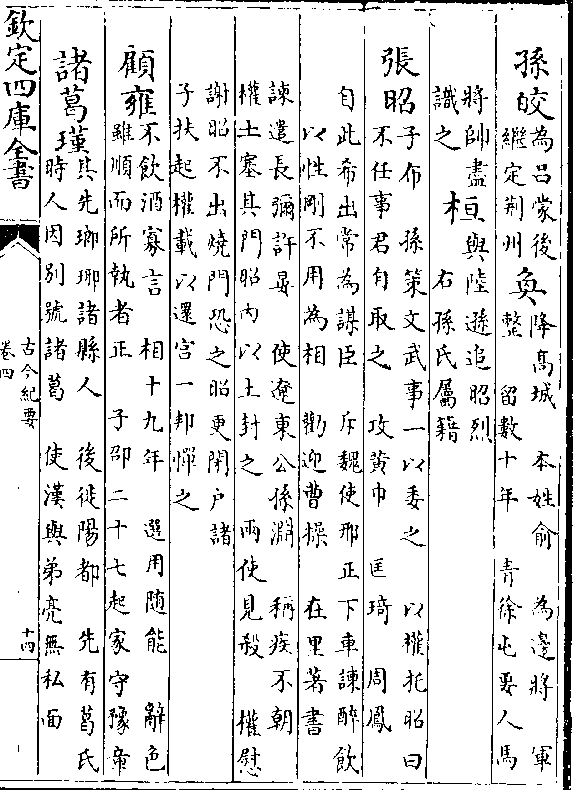 孫皎 為呂蒙後
繼定荆州 奐 降高城　本姓俞　為邊將　軍
整　留數十年　青徐屯要人馬
將帥盡
識之 桓 與陸遜追昭烈
右孫氏屬籍
張昭 子布　孫策文武事一以委之　以權托昭曰
不任事君自取之　攻黄巾　匡琦　周鳳
自此希出常為謀臣　斥魏使邢正下車諫醉飲
以性剛不用為相　勸迎曹操　在里著書
諫遣長彌許晏　使遼東公孫淵　稱疾不朝
權土塞其門昭内以土封之　兩使見殺　權慰
謝昭不出燒門恐之昭更閉户諸
子扶起權載以還宫一邦憚之
顧雍 不飲酒寡言　相十九年　選用随能　辭色
雖順而所執者正　子邵二十七起家守豫章
諸葛瑾 其先瑯琊諸縣人　後徙陽都　先有葛氏
時人因别號諸葛　使漢與弟亮無私面
欽定四庫全書
古今紀要
卷四
十四